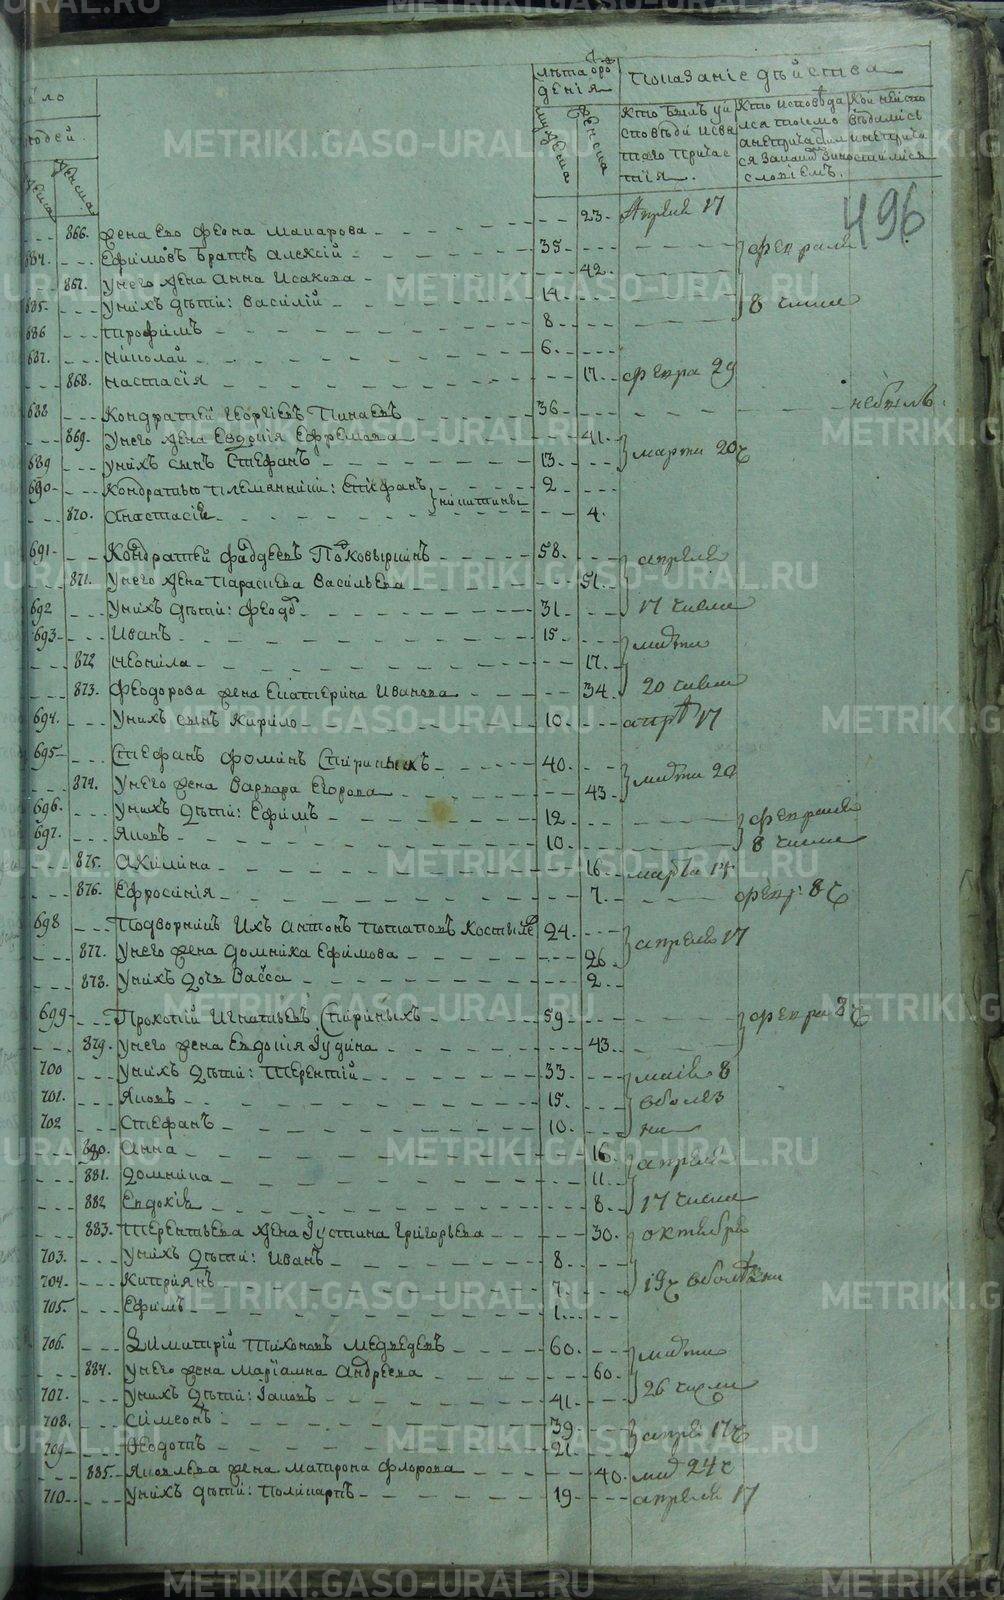 число
людей
мужеска
женска
лѣта о рож
денія
мужеска
женска
показаніе дѣйства
Кто былъ у и
сповѣди и свя
таго причас
тія.
Кто исповѣда
лся токмо
а не причастил
ся
Кои не испо
вѣдались
и не прича
стились
496
866. жена его феона макарова 23 Апреля 17
684. Ефимовъ братъ алексій 35 февраля
867. унего жена анна исакова 42
685. унихъ дѣти: василій 14 8 числа
686 трофимъ 8
687. николай 6
868. настасія 17 февра 29
688 кондратей георгіевъ пинаевъ 36 небылъ.
869. унего жена евдокія ефремова 41 марта 20
689 унихъ сынъ стефанъ 13
690 кондратью племянники: стефанъ 2 никитины
870. анастасія 4
691 кондратей фаддеевъ 58 апреля
871. унего жена параскева васильева 51 17 числа
692 унихъ дѣти: феодо 31
693 иванъ 15
872 неонила 17
873. феодорова жена екатерина иванова 34 20 числа
694. унихъ сынъ кирило 10 апре 17
695 стефанъ фоминъ спириныхъ 40
874. унего жена варвара егорова 43
696. унихъ дѣти: ефимъ 12 февраля
697. яковъ 10 8 числа
875. акилина 16 марта 17
876. ефросинія 7 февр: 8
698 подворникъ ихъ антонъ потаповъ костыле 24 апреля 17
877. унего жена домника ефимова 26
878. унихъ дочь васса 2
699 прокопій игнатьевъ спириныхъ 59 февра 8
879. унего жена евдокія іудина 43
700 унихъ дѣти: терентій 33 маія 8
701. яковъ 15 оболез
702 стефанъ 10 ни
880. анна 16 апреля
881. домника 11
882 евдокія 8 17 числа
883. терентьева жена іустина григорьева 30 октября
703. унихъ дѣти: иванъ 8
704. кипріянъ 7 19
705. ефимъ 1
706. димитрій тихоновъ медведевъ 60
884. унего жена маріамна андреева 60 26 числа
707. унихъ дѣти: іаковъ 41
708. симеонъ 39 апре 17
709 феодотъ 21
885. яковлева жена матрона флорова 40. 24
710 унихъ дѣти: поликарпъ 19 апреля 17
METRIKI.GASO-URAL.RU